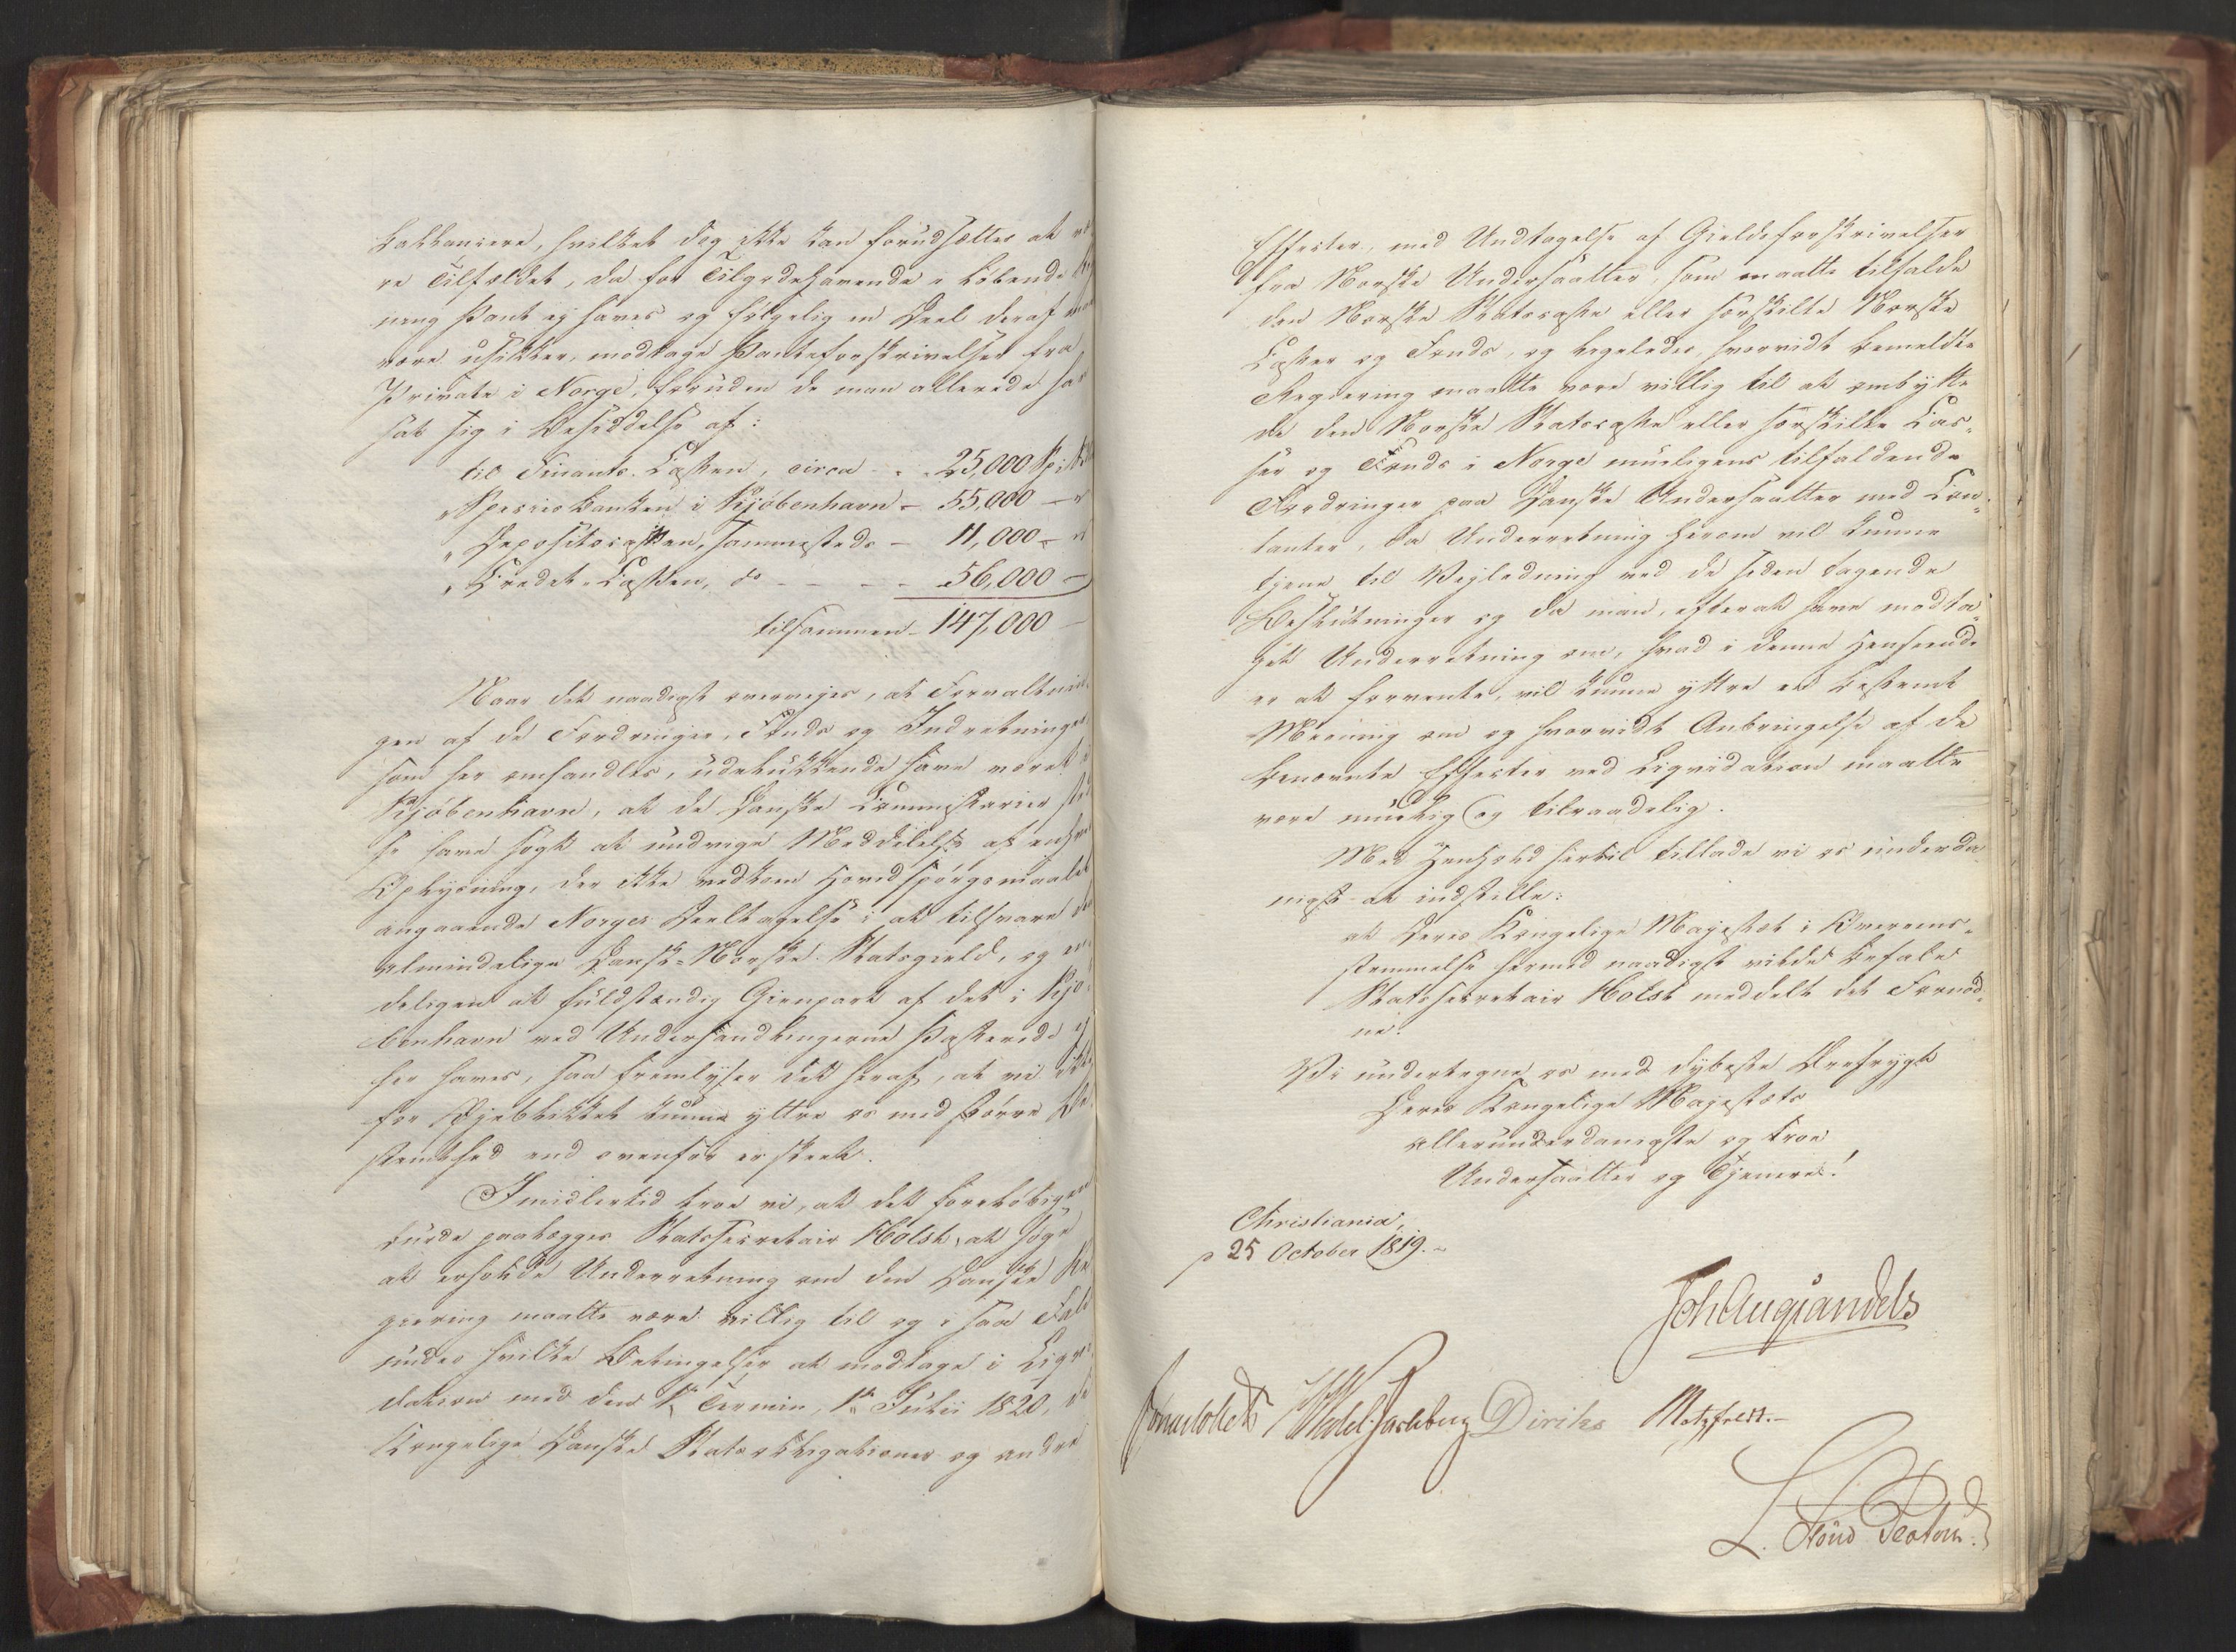 balancere, hvilket dog ikke kan forudsættes at væ
re Tilfældet, da for Tilgodehavende i løbende Reg
ning Pant ej haves og følgelig en Deel deraf maa
være usikker, modtage Panteforskrivelser fra
Private i Norge, foruden de man allerede har
sat sig i Besiddelse af:
til Finants-Cassen, circa - - 25,000 Spd
" Speciesbanken i Kjöbenhavn - 55,000 - "
" Depositocassen, sammesteds - 11,000 - "
" Credit-Cassen, do - - - - 56,000 -
tilsammen - 147,000 -
Naar det naadigst overvejes, at Forvaltnin
gen af de Fordringer, Fonds og Indretninger
som her omhandles, udelukkende have været i
Kjöbenhavn, at de Danske Commissarier
se have søgt at undvige Meddelelse af enhver
Oplysning, der ikke vedkom Hovedspörgsmaalet
angaaende Norges Deeltagelse i at tilsvare den
almindelige Dansk-Norske Statsgield, og en
deligen at fuldstændig Gienpart af det i Kjö
benhavn ved Underhandlingerne Passerede ej
her haves, saa fremlyser det heraf, at vi ikke
for Øjeblikket kunne yttre os med större Be
stemthed end ovenfor er skeet.
Imidlertid troe vi, at det foreløbigen
burde paalægges Statssecretair Holst, at søge
at erholde Underretning om den Danske Re
giering maatte være villig til og i saa Fald
under hvilke Betingelser at modtage i Liqvi
dation med den 1te Termin, 1te Julii 1820, de
Kongelige Danske Statsobligationer og andre
Effecter, med Undtagelse af Gieldsforskrivelser
fra Norske Undersaatter, som maatte tilfalde
den Norske Statscasse eller særskilte Norske
Casser og Fonds, og ligeledes, hvorvidt bemeldte
Regiering maatte være villig til at ombytte
de den Norske Statscasse eller særskilte Cas-
ser og Fonds i Norge mueligens tilfaldende
Fordringer paa Danske Undersaatter med Con-
tanter, da Underretning herom vil kunne
tjene til Vejledning ved de siden tagende
Beslutninger og da man, efterat have modta-
get Underretning om, hvad i denne Henseende
er at forvente, vil kunne yttre en bestemt
Meening om og hvorvidt Anbringelse af de
benævnte Effecter ved Liqvidation maatte
være muelig og tilraadelig.
Med Henhold hertil tillade vi os underda
nigst at indstille:
at Deres Kongelige Majestæt i Overeens-
stemmelse hermed naadigst vilde befale
Statssecretair Holst meddelt det Fornöd-
ne.
Vi undertegne os med dybeste Ærefrygt
Deres Kongelige Majestæts
allerunderdanigste og troe
Undersaatter og Tjenere!
Christiania,
d 25 October 1819.
JohAugSandels
Jonas Collett HWedel Jarlsberg Diriks Motzfeldt.
L. Stoud Platou.